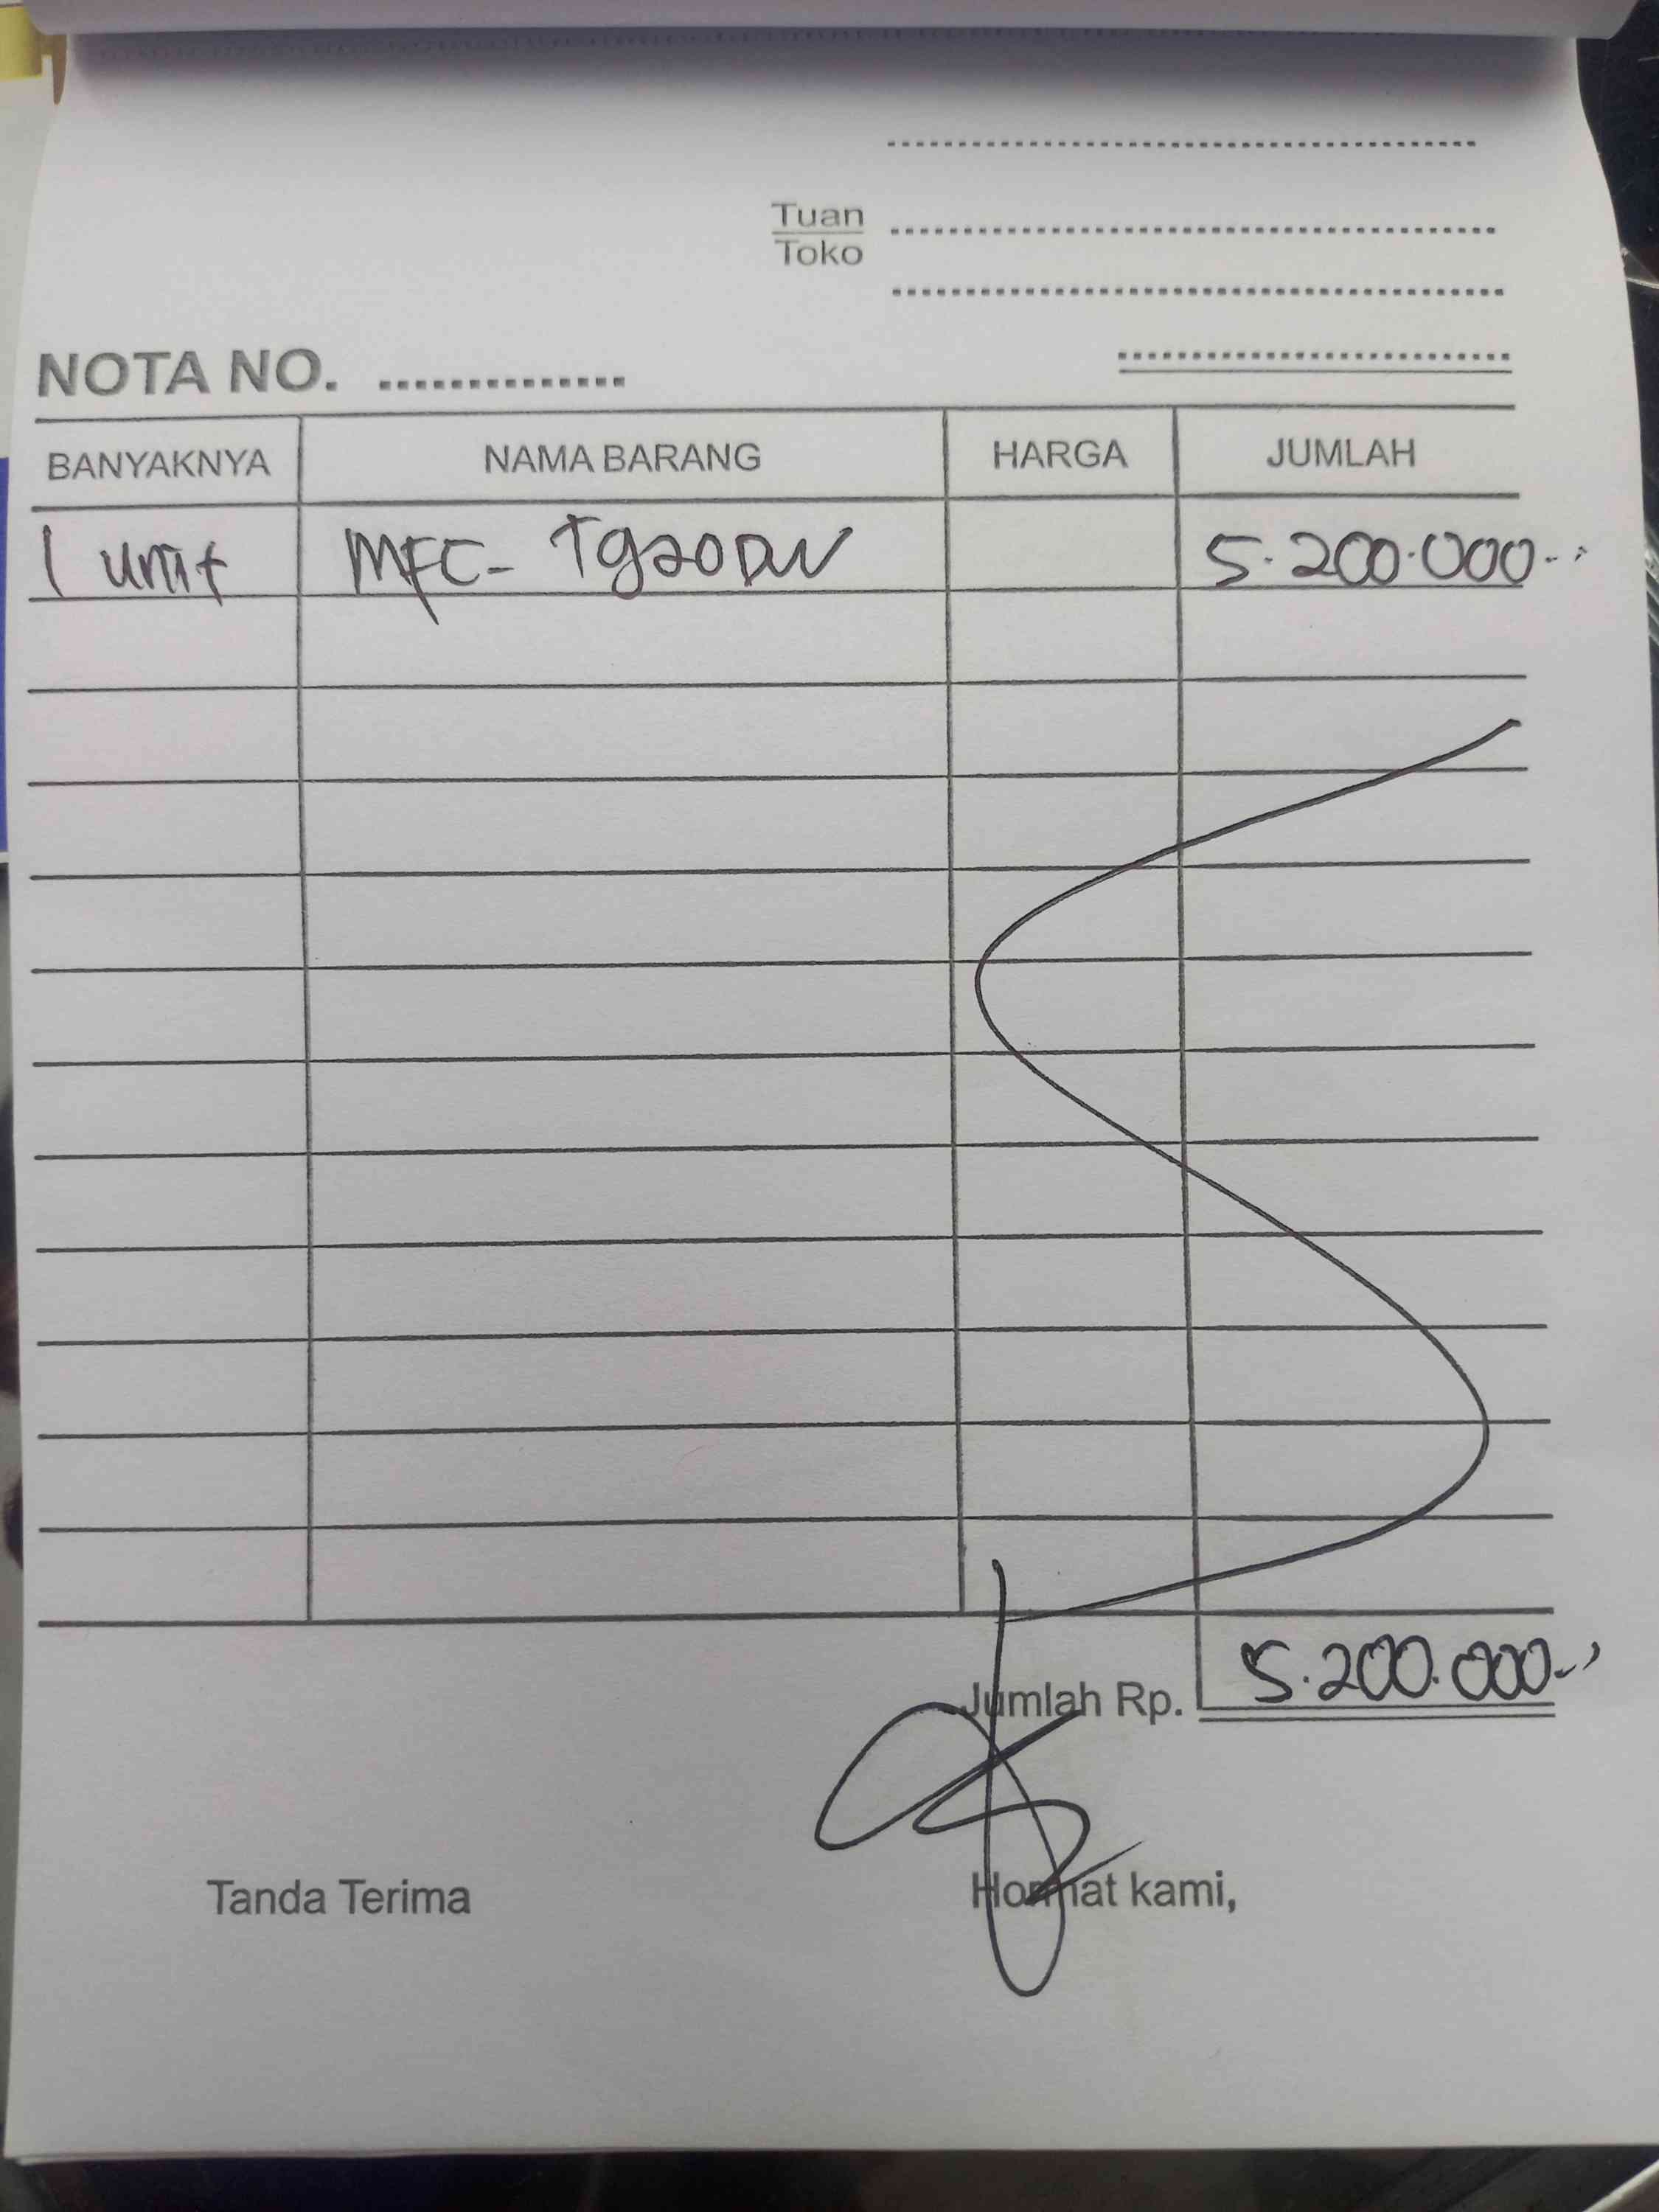 Tuan
Toko
NOTA NO. ..............
BANYAKNYA NAMA BARANG HARGA JUMLAH
1 unit MFC- T920DW 5.200.000--
Jumlah Rp. 5.200.000--
Tanda Terima Hormat kami,